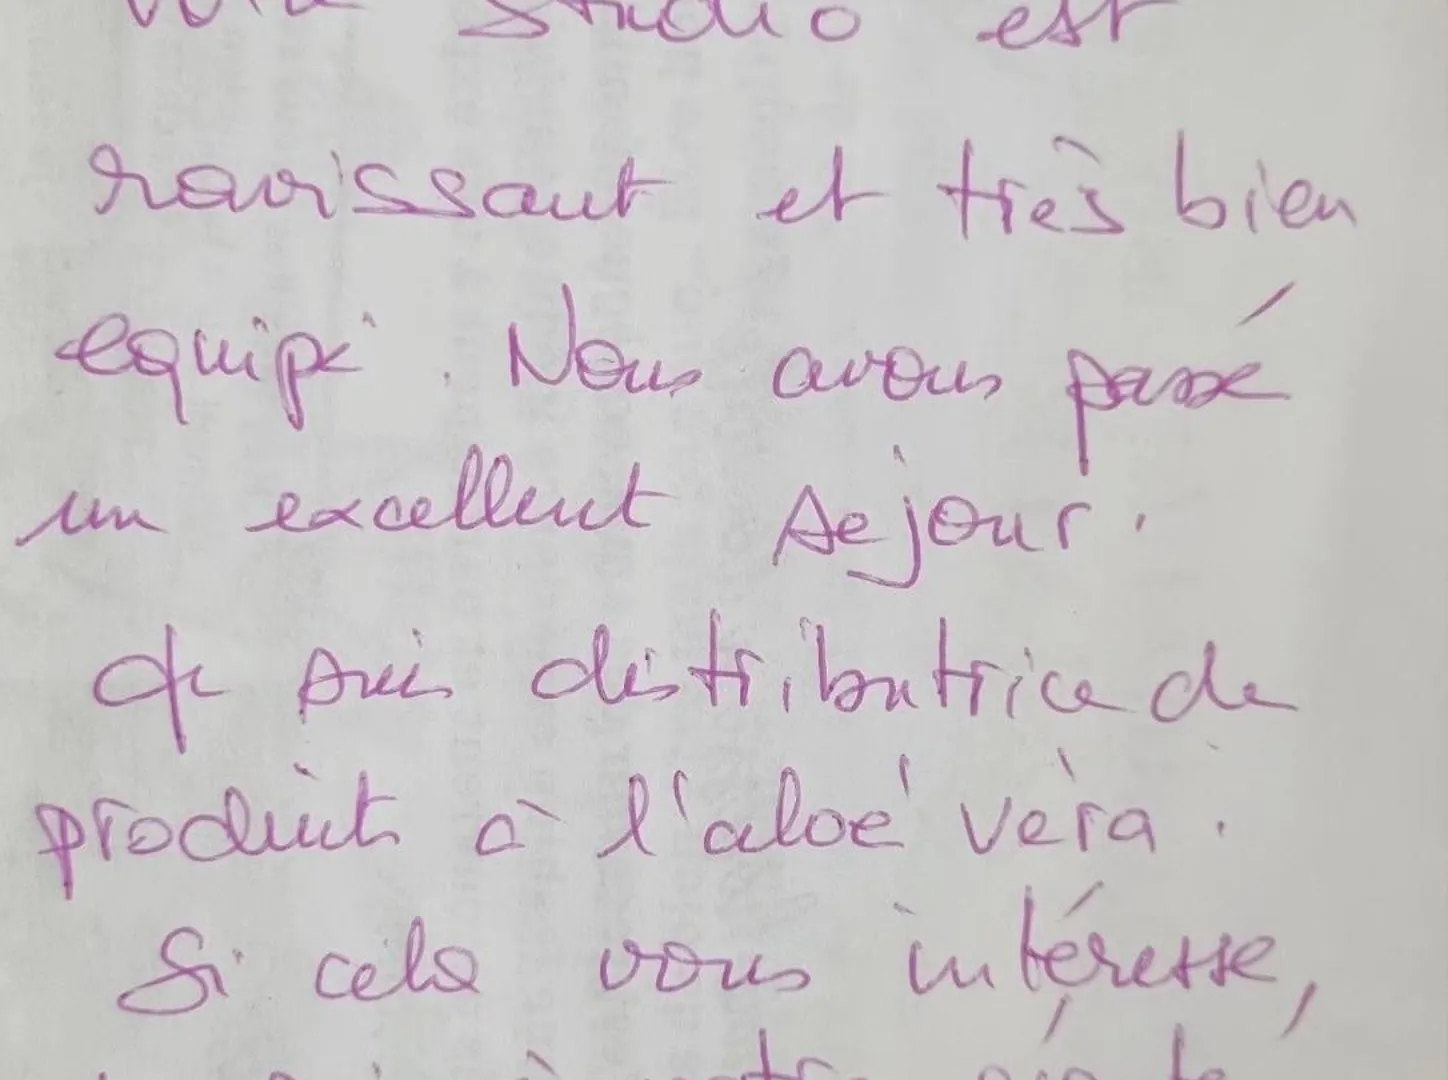 studio est
ravissant et très bien
equipé. Nous avons passé
un excellent séjour.
Je suis distributrice de
produits à l'aloé véra.
Si cela vous intéresse,